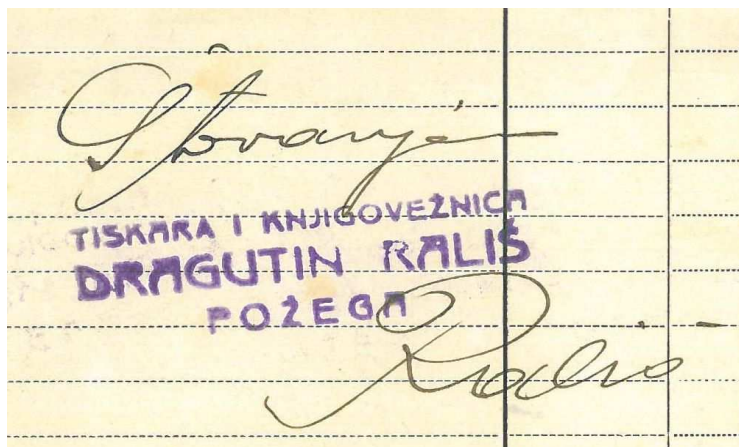 Štovanjem
TISKARA I KNJIGOVEŽNICA
DRAGUTIN RALIŠ
POŽEGA
Rališ